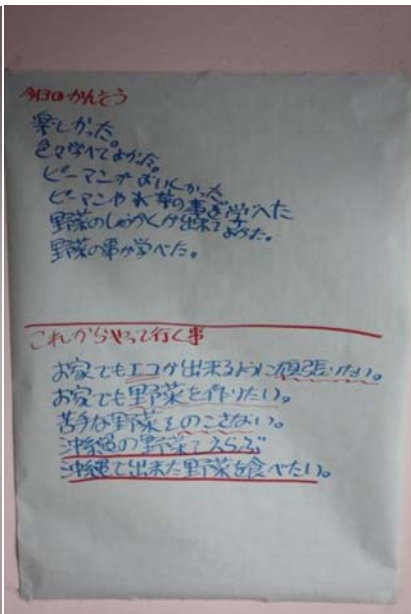 今日のかんそう
楽しかった。
色々学べてよかった。
ピーマンがおいしかった。
ピーマンや水草の事を学べた
野菜のしゅうかくが出来てよかった。
野菜の事が学べた。
これからやって行く事
お家でもエコが出来るように頑張りたい。
お家でも野菜を作りたい。
苦手な野菜をのこさない。
沖縄の野菜でえらぶ
沖縄で出来た野菜を食べたい。